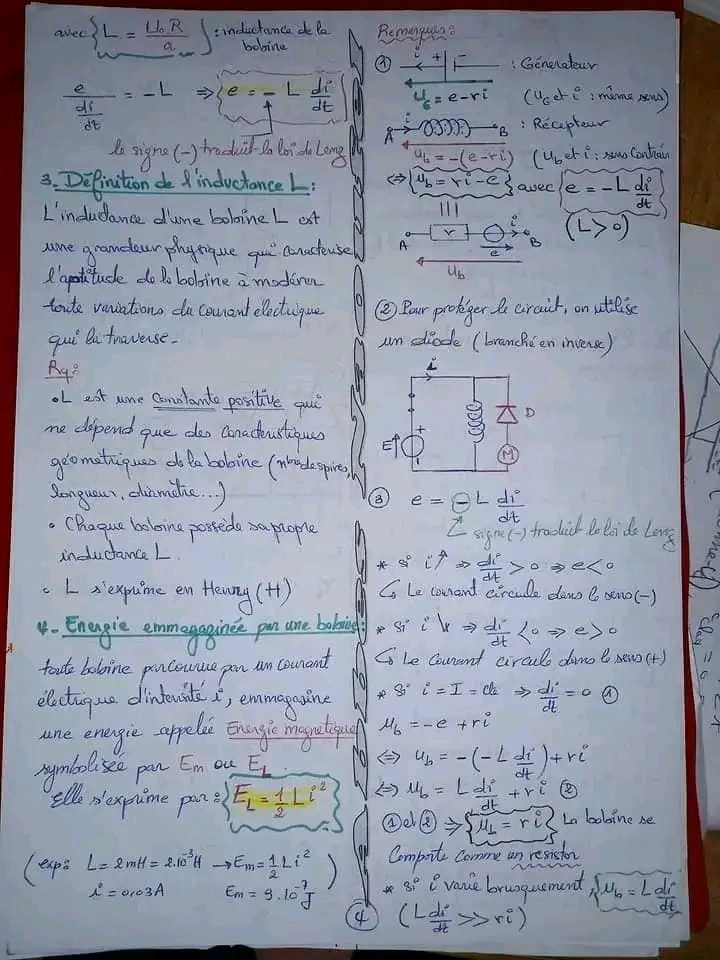 avec { L = U₀ R / a } : inductance de la
bobine
e / (di/dt) = -L ⇒ e = - L di/dt
le signe (-) traduit la loi de Lenz
3. Définition de l'inductance L :
L'inductance d'une bobine L est
une grandeur physique qui caracterise
l'aptitude de la bobine à modérer
toute variations du courant électrique
qui la traverse.
Rq :
• L est une constante positive qui
ne dépend que des caracteristiques
géometriques de la bobine (nbre de spires,
longueur, diamètre...)
• Chaque bobine possède sa propre
inductance L.
• L s'exprime en Henry (H)
4. Energie emmagazinée par une bobine :
toute bobine parcourue par un courant
électrique d'intensité i, emmagasine
une energie appelée Energie magnetique
symbolisée par Em ou E_L.
Elle s'exprime par : E_L = 1/2 L i²
(exp : L = 2mH = 2.10⁻³H → Em = 1/2 L i²
i = 0,03A Em = 9.10⁻⁷J )
Remarques :
① i + - : Générateur
U_G = e - ri (U_G et i : même sens)
A i B : Récepteur
u_b = -(e - ri) (U_b et i : sens contrai
⇔ u_b = ri - e avec e = -L di/dt
(L > 0)
A r i B
e
u_b
② Pour protéger le circuit, on utilise
un diode (branché en inverse)
i
E + D
M
③ e = - L di/dt
signe (-) traduit la loi de Lenz
* si i ↗ ⇒ di/dt > 0 ⇒ e < 0
↳ Le courant circule dans le sens (-)
* Si i ↘ ⇒ di/dt < 0 ⇒ e > 0
↳ Le courant circule dans le sens (+)
* Si i = I = cte ⇒ di/dt = 0 ①
u_b = -e + ri
⇔ u_b = -(-L di/dt) + ri
⇔ u_b = L di/dt + ri ②
① et ② ⇒ u_b = ri La bobine se
Comporte comme un resistor
* si i varie brusquement, u_b = L di/dt
(L di/dt >> ri)
④